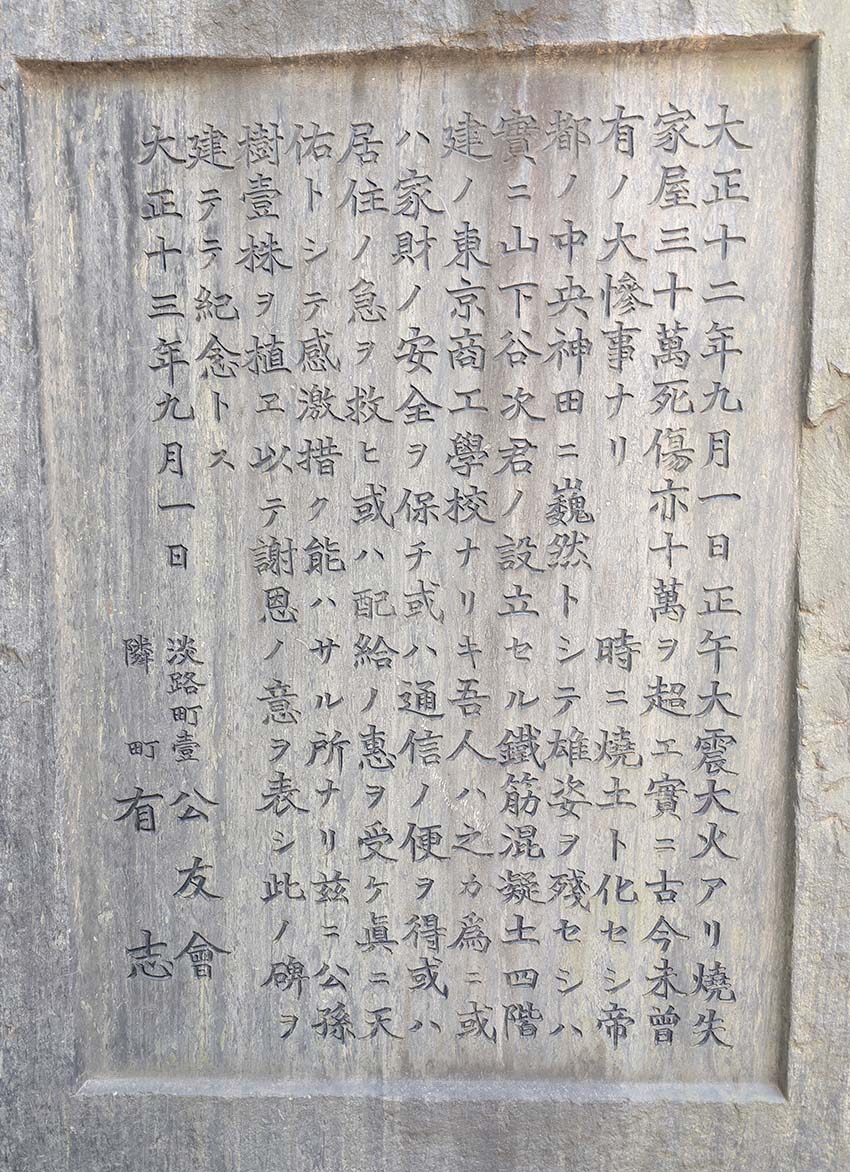 大正十二年九月一日正午大震大火アリ燒失
家屋三十萬死傷亦十萬ヲ超エ實ニ古今未曾
有ノ大慘事ナリ 時ニ燒土ト化セシ帝
都ノ中央神田ニ巍然トシテ雄姿ヲ殘セシハ
實ニ山下谷次君ノ設立セル鐵筋混凝土四階
建ノ東京商工學校ナリキ吾人ハ之カ爲ニ或
ハ家財ノ安全ヲ保チ或ハ通信ノ便ヲ得或ハ
居住ノ急ヲ救ヒ或ハ配給ノ惠ヲ受ケ眞ニ天
佑トシテ感激措ク能ハサル所ナリ茲ニ公孫
樹壹株ヲ植ヱ以テ謝恩ノ意ヲ表シ此ノ碑ヲ
建テテ紀念トス
大正十三年九月一日
淡路町壹 公友會
隣町 有志